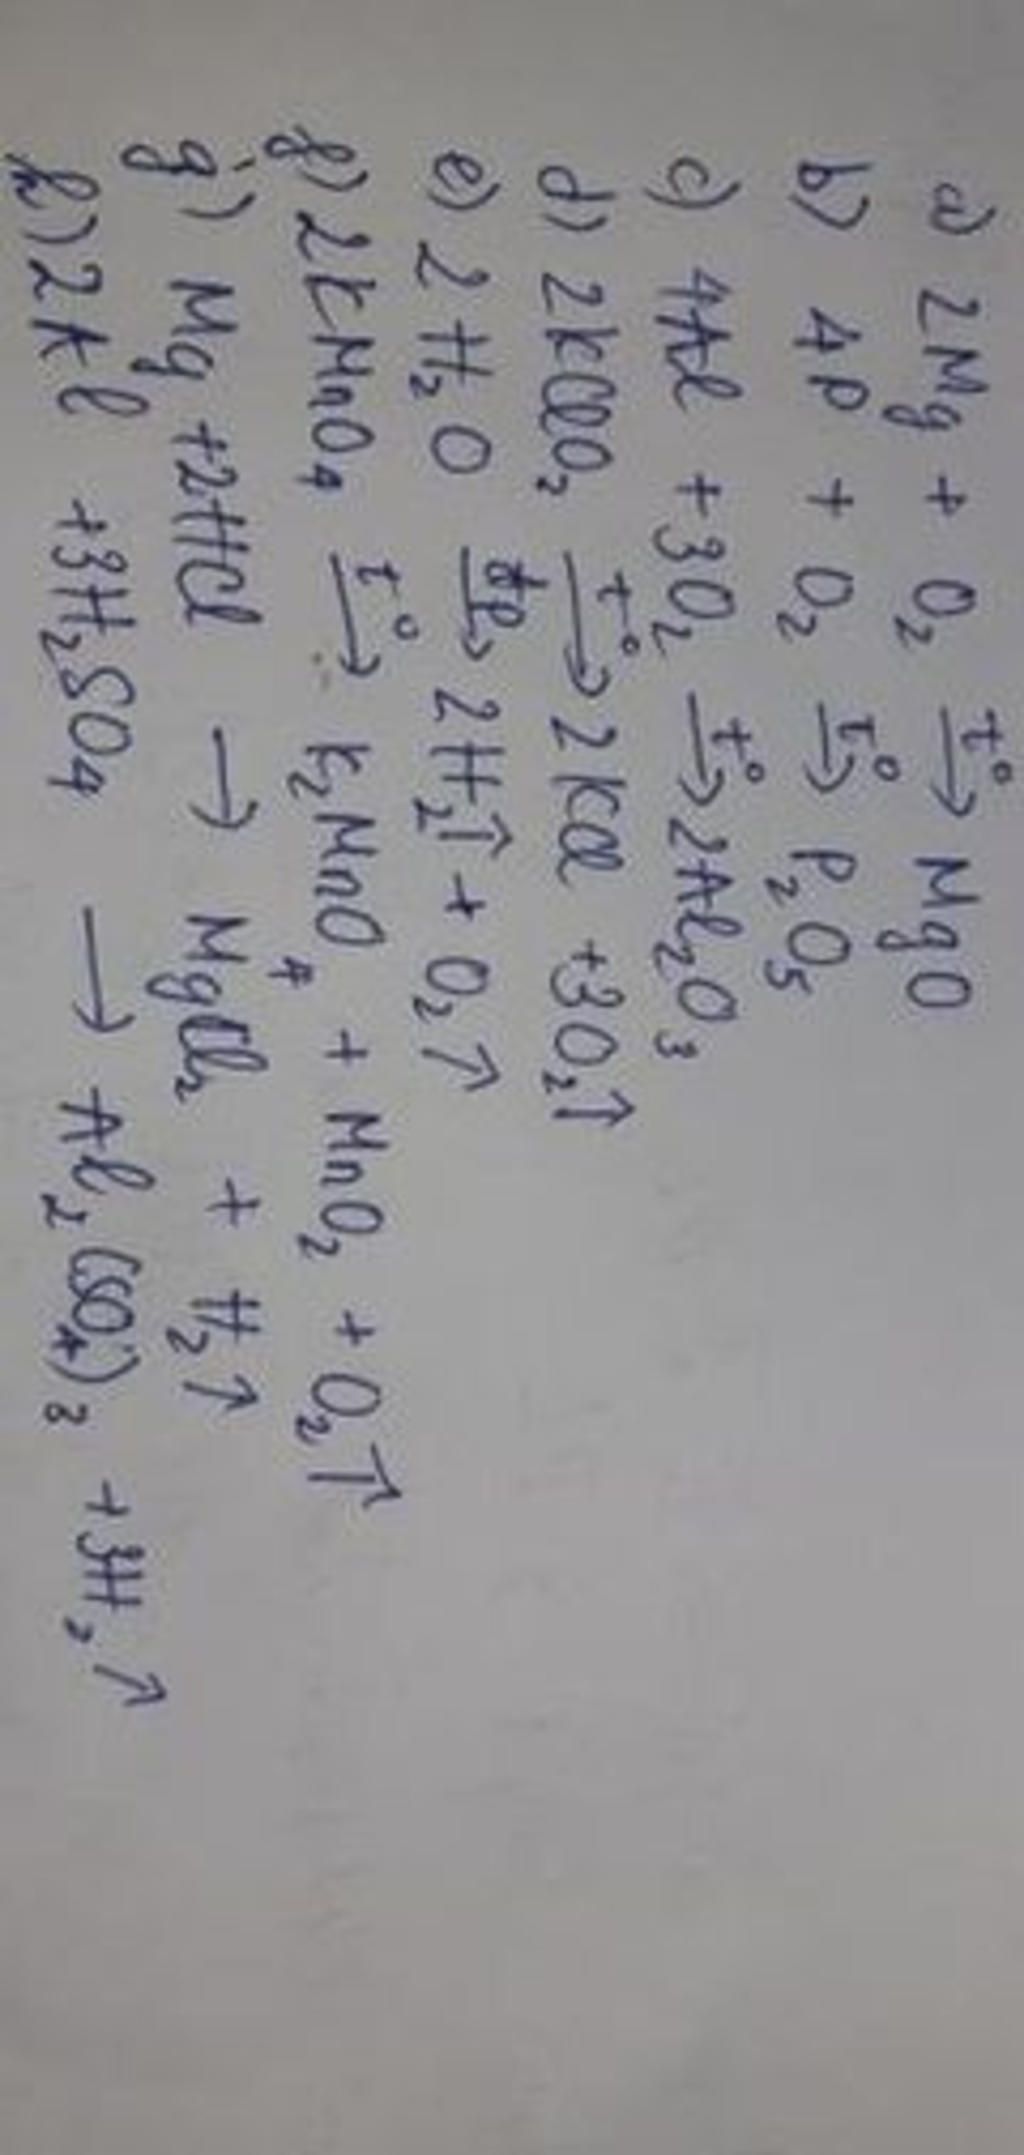 a) 2Mg + O₂ —t°→ MgO
b) 4P + O₂ —t°→ P₂O₅
c) 4Al + 3O₂ —t°→ 2Al₂O₃
d) 2KClO₂ —t°→ 2KCl + 3O₂↑
e) 2H₂O —đp→ 2H₂↑ + O₂↑
f) 2KMnO₄ —t°→ K₂MnO₄ + MnO₂ + O₂↑
g) Mg + 2HCl → MgCl₂ + H₂↑
h) 2Al + 3H₂SO₄ → Al₂(SO₄)₃ + 3H₂↑